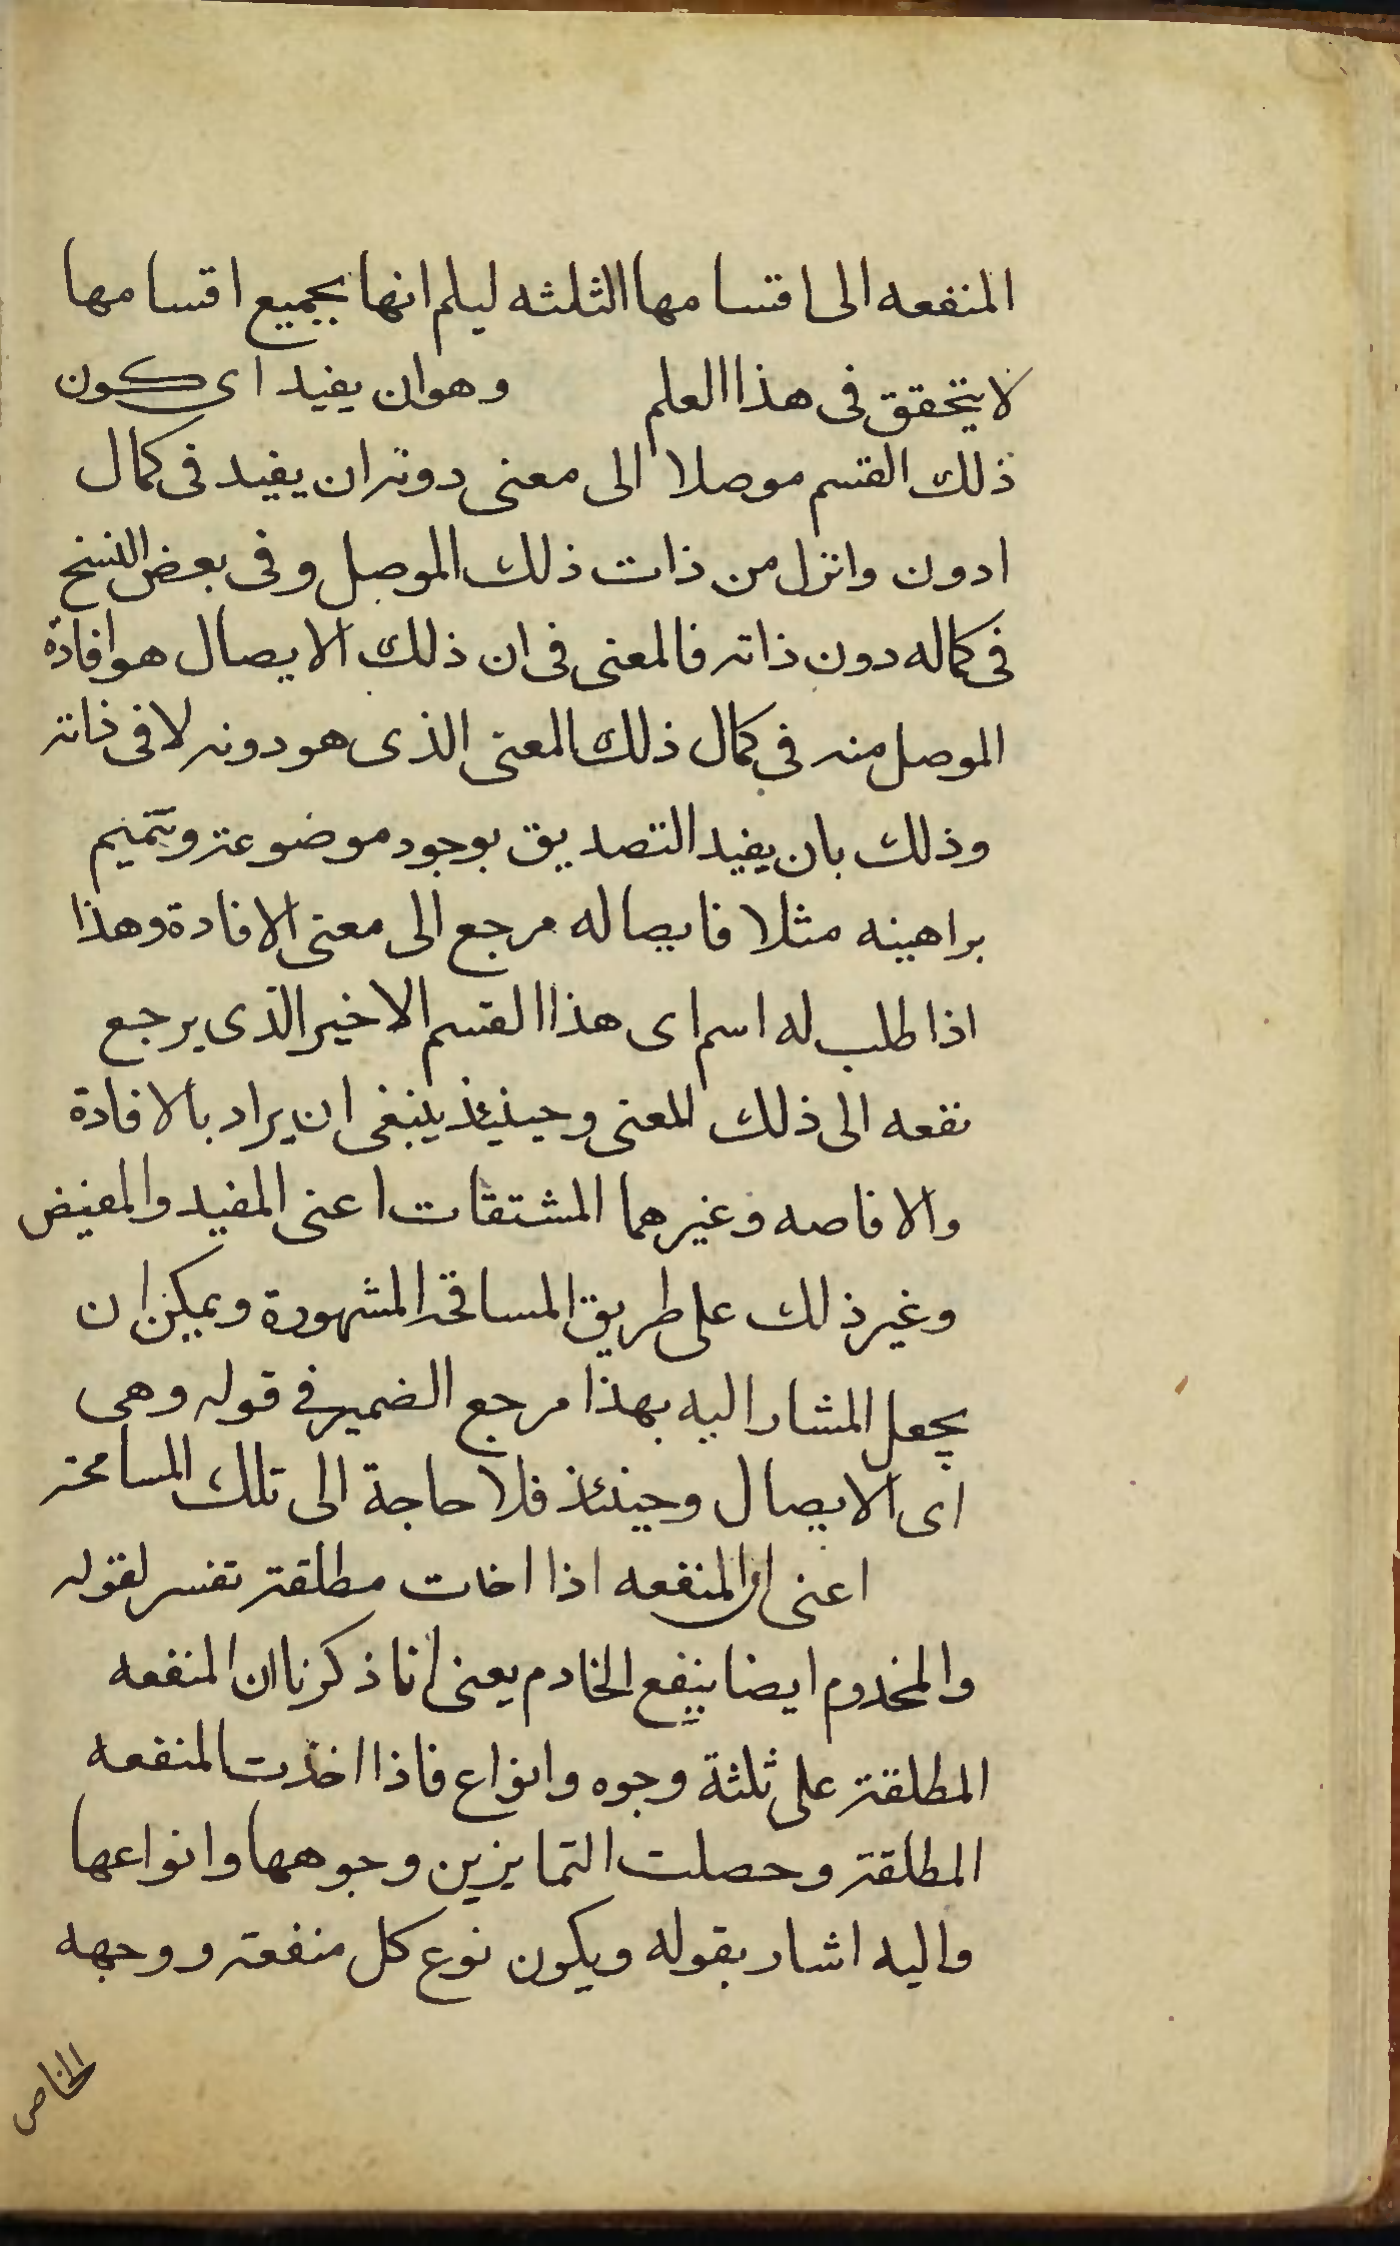 المنفعه الى اقسامها الثلثه ليلم انها بجميع اقسامها
لا يتحقق فى هذا العلم وهو ان يفيد اى كون
ذلك القسم موصلا الى معنى دونه ان يفيد فى كمال
ادون وانزل من ذات ذلك الموصل وفى بعض النسخ
فى كماله دون ذاته فالمعنى فى ان ذلك الايصال هو افادة
الموصل منه فى كمال ذلك المعنى الذى هو دونه لا فى ذاته
وذلك بان يفيد التصديق بوجود موضوعته وتتميم
براهينه مثلا فايصاله مرجع الى معنى الافادة وهذا
اذا طلب له اسم اى هذا القسم الاخير الذى يرجع
نفعه الى ذلك المعنى وحينئذ ينبغى ان يراد بالافادة
والافاصه وغيرهما المشتقات اعنى المفيد والمفيض
وغير ذلك على طريق المسامحة المشهورة ويمكن ان
يجعل المشار اليه بهذا مرجع الضمير في قوله وهى
اى الايصال وحينئذ فلا حاجة الى تلك المسامحة
اعنى ان المنفعه اذا اخذت مطلقة تفسر لقوله
والمخدوم ايضا ينفع الخادم يعنى انا ذكرنا ان المنفعه
المطلقة على ثلثة وجوه وانواع فاذا اخذت المنفعه
المطلقة وحصلت التمايز بين وجوهها وانواعها
واليه اشار بقوله ويكون نوع كل منفعة ووجهه
الخاص